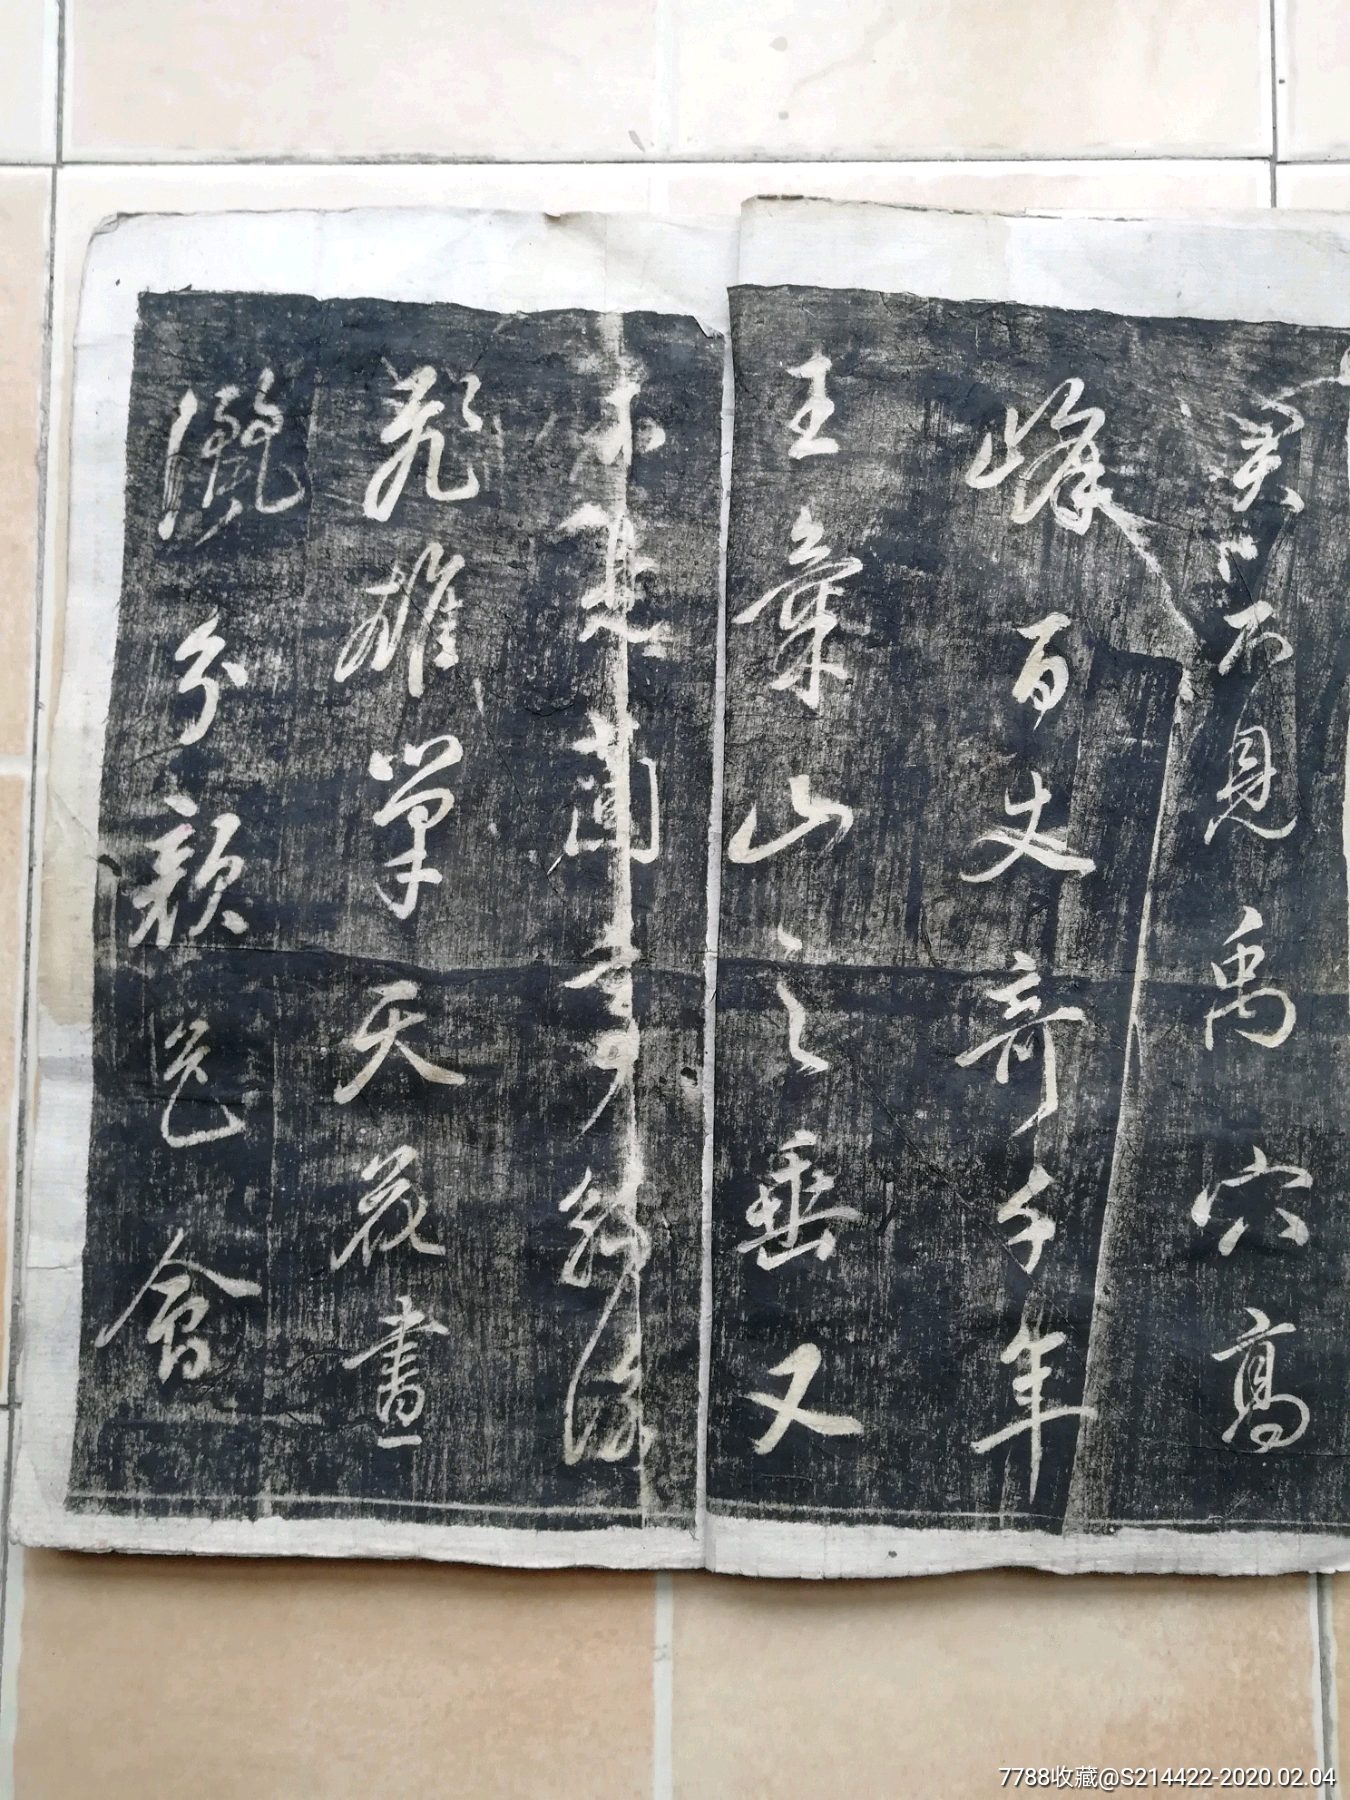 君不見禹穴高
峰百丈奇千年
王氣山之垂又
不蘭亭
雄筆天花晝
灑分顏色會
7788收藏@S214422-2020.02.04